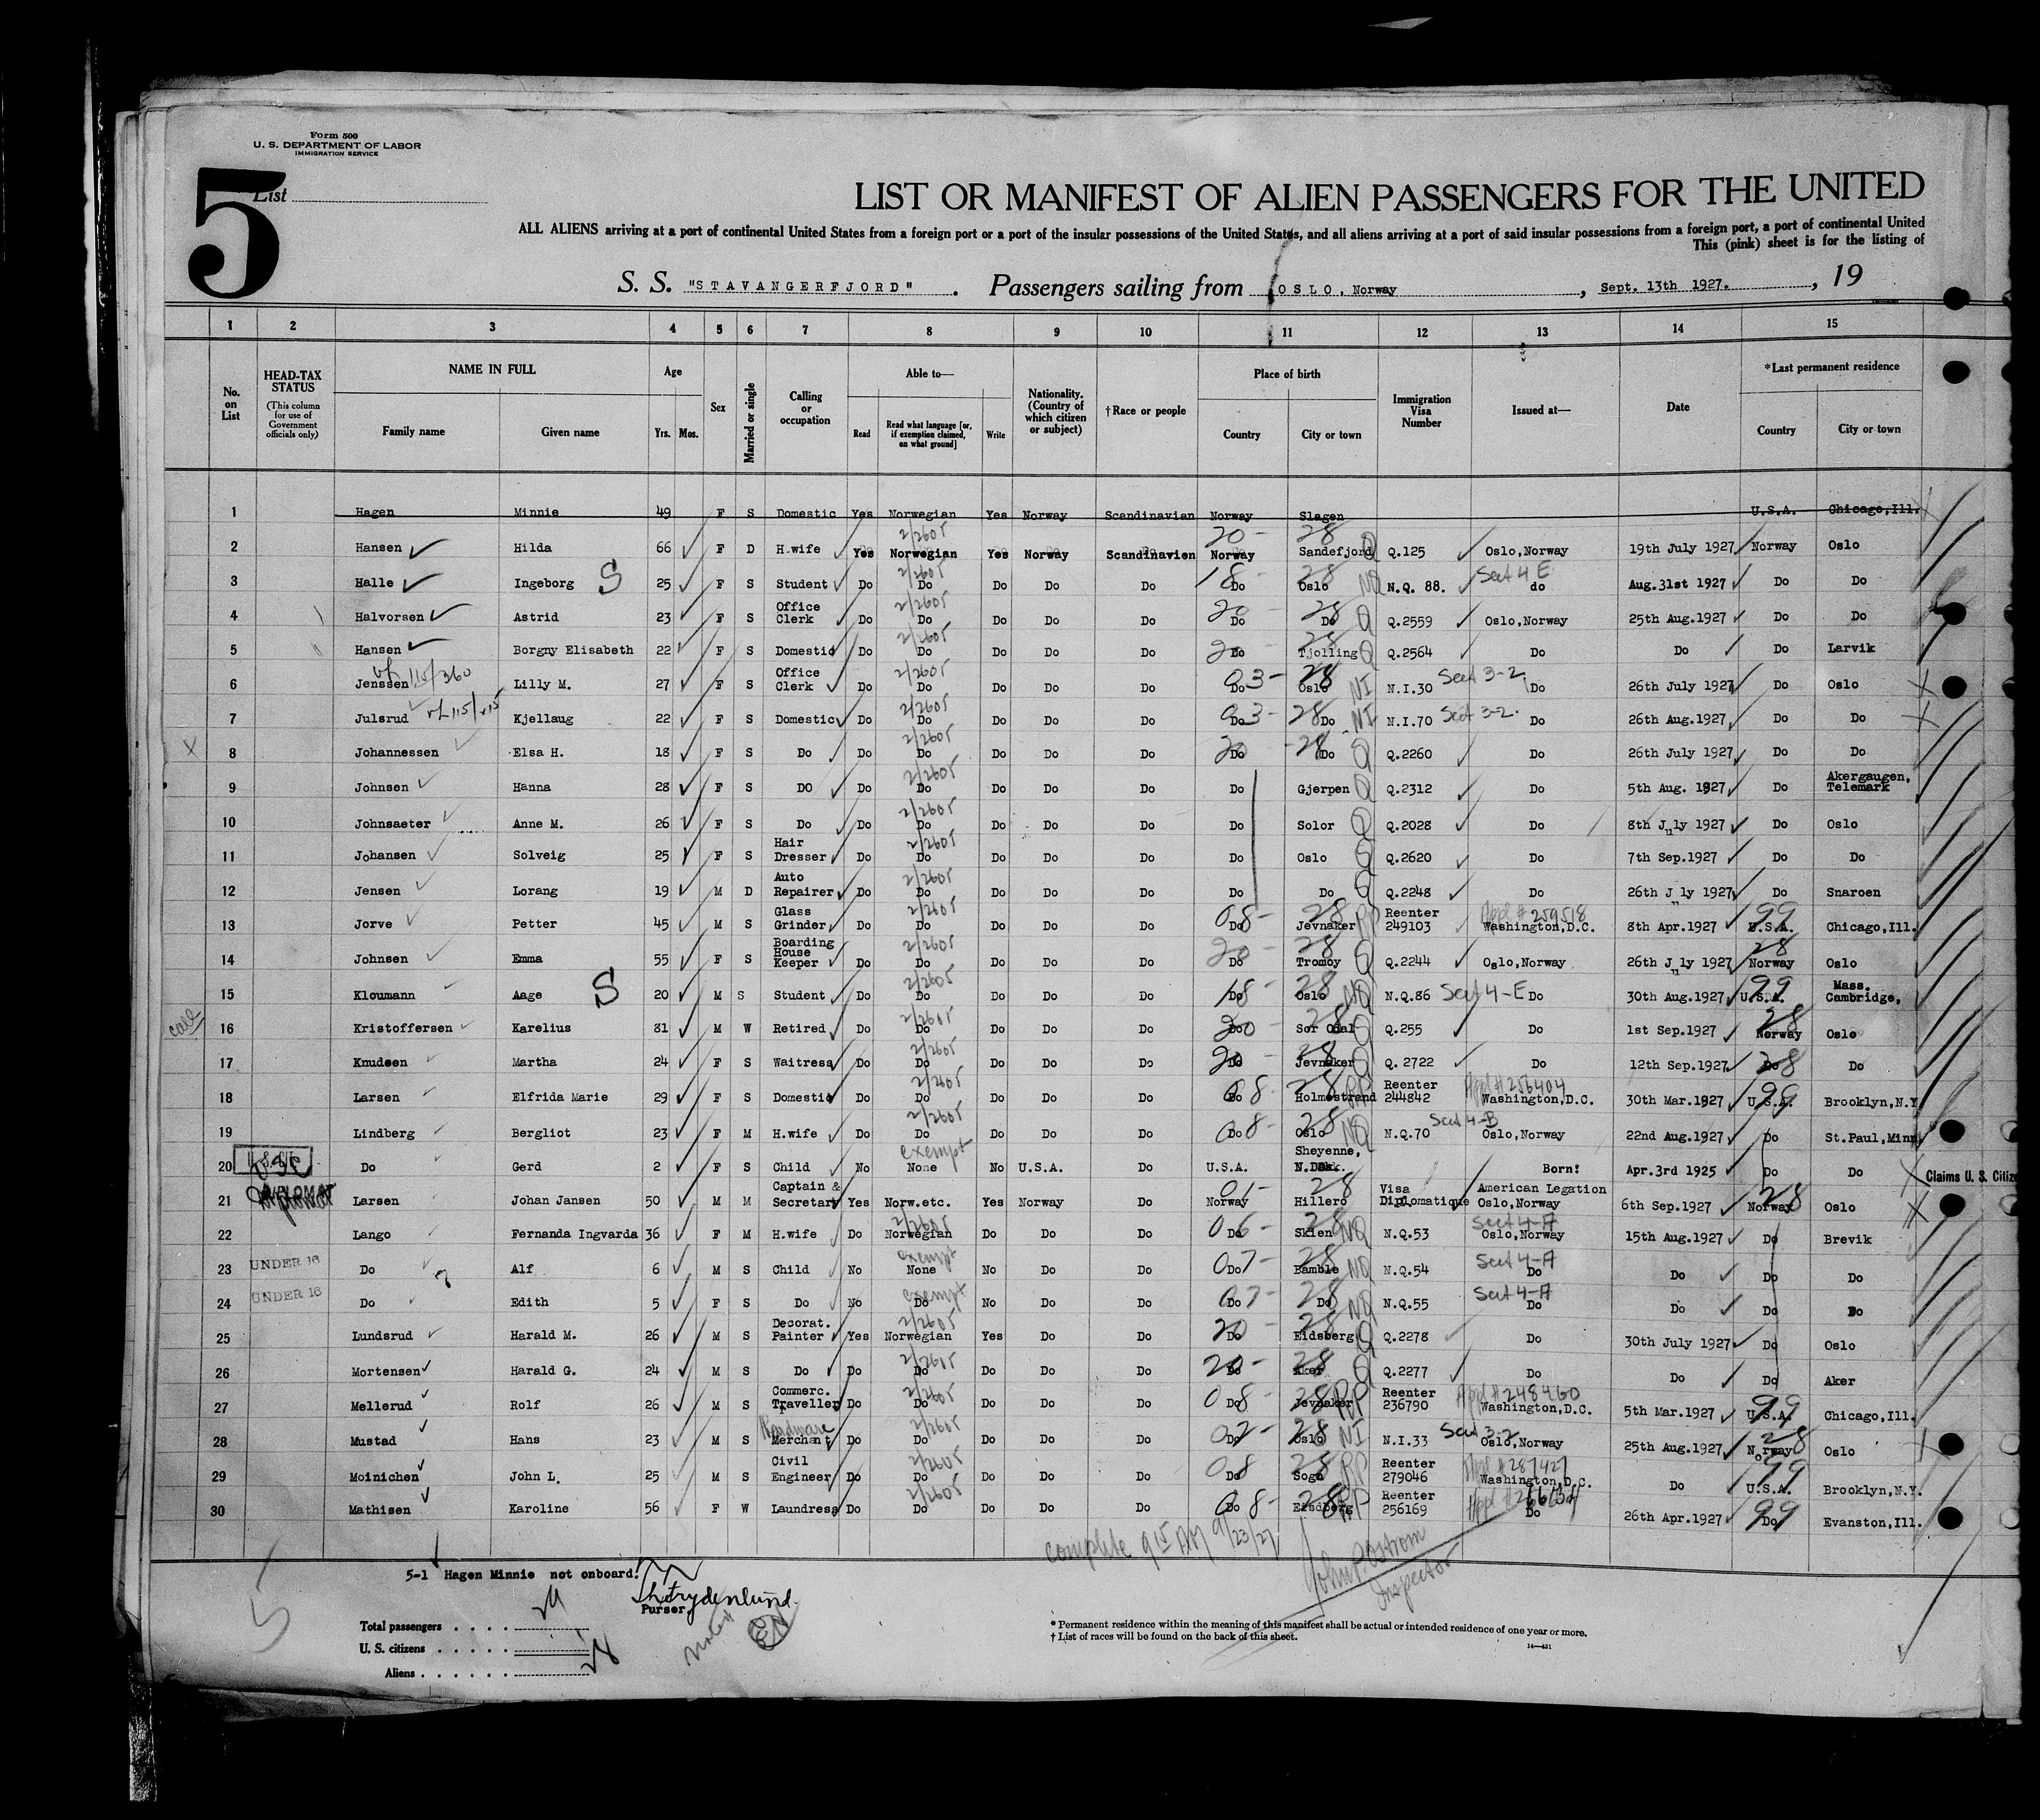 Form 500
U. S. DEPARTMENT OF LABOR
IMMIGRATION SERVICE
5
List
LIST OR MANIFEST OF ALIEN PASSENGERS FOR THE UNITED
ALL ALIENS arriving at a port of continental United States from a foreign port or a port of the insular possessions of the United States, and all aliens arriving at a port of said insular possessions from a foreign port, a port of continental United
This (pink) sheet is for the listing of
S. S. "STAVANGERFJORD". Passengers sailing from OSLO, Norway, Sept. 13th 1927., 19
1 2 3 4 5 6 7 8 9 10 11 12 13 14 15
No. on List HEAD-TAX STATUS (This column for use of Government officials only) NAME IN FULL Family name Given name Age Yrs. Mos. Sex Married or single Calling or occupation Able to— Read Read what language [or, if exemption claimed, on what ground] Write Nationality. (Country of which citizen or subject) †Race or people Place of birth Country City or town Immigration Visa Number Issued at— Date *Last permanent residence Country City or town
1 Hagen Minnie 49 F S Domestic Yes Norwegian Yes Norway Scandinavian Norway Slagen U.S.A. Chicago,Ill.
2 Hansen Hilda 66 F D H.wife Yes Norwegian 2/2605 Yes Norway Scandinavien Norway 20- Sandefjord 28 Q Q.125 Oslo,Norway 19th July 1927 Norway Oslo
3 Halle Ingeborg S 25 F S Student Do Do 2/2605 Do Do Do Do 18- Oslo 28 NQ N.Q. 88. Sect 4 E do Aug.31st 1927 Do Do
4 Halvorsen Astrid 23 F S Office Clerk Do Do 2/2605 Do Do Do Do 20- Do 28 Q Q.2559 Oslo,Norway 25th Aug.1927 Do Do
5 Hansen Borgny Elisabeth 22 F S Domestic Do Do 2/2605 Do Do Do Do 20- Tjolling 28 Q Q.2564 Do Do Do Larvik
6 Jenssen 115/360 Lilly M. 27 F S Office Clerk Do Do 2/2605 Do Do Do Do 03- Oslo 28 NI N.I.30 Sect 3-2 Do 26th July 1927 Do Oslo
7 Julsrud Kjellaug 22 F S Domestic Do Do 2/2605 Do Do Do Do 03- Do 28 NI N.I.70 Sect 3-2. Do 26th Aug.1927 Do Do
8 Johannessen Elsa H. 18 F S Do Do Do 2/2605 Do Do Do Do 20 Do -28 Q Q.2260 Do 26th July 1927 Do Do
9 Johnsen Hanna 28 F S DO Do Do 2/2605 Do Do Do Do Gjerpen Q Q.2312 Do 5th Aug. 1927 Do Akergaugen, Telemark
10 Johnsaeter Anne M. 26 F S Do Do Do 2/2605 Do Do Do Do Solor Q Q.2028 Do 8th July 1927 Do Oslo
11 Johansen Solveig 25 F S Hair Dresser Do Do 2/2605 Do Do Do Do Oslo Q Q.2620 Do 7th Sep.1927 Do Do
12 Jensen Lorang 19 M D Auto Repairer Do Do 2/2605 Do Do Do Do Do Q Q.2248 Do 26th July 1927 Do Snaroen
13 Jorve Petter 45 M S Glass Grinder Do Do 2/2605 Do Do Do Do 08- Jevnaker 28 RP Reenter 249103 Appl # 259518 Washington,D.C. 8th Apr.1927 U.S.A. 99 Chicago,Ill.
14 Johnsen Emma 55 F S Boarding House Keeper Do Do 2/2605 Do Do Do Do 20- Tromoy 28 Q Q.2244 Oslo,Norway 26th July 1927 Norway 28 Oslo
15 Kloumann Aage S 20 M S Student Do Do 2/2605 Do Do Do Do 18- Oslo 28 NQ N.Q.86 Sect 4-E Do 30th Aug.1927 U.S.A. 99 Mass. Cambridge,
16 Kristoffersen Karelius 81 M W Retired Do Do 2/2605 Do Do Do Do 20- Sor Odal 28 Q Q.255 Do 1st Sep.1927 Norway 28 Oslo
17 Knudsen Martha 24 F S Waitress Do Do 2/2605 Do Do Do Do 20- Jevnaker 28 Q Q. 2722 Do 12th Sep.1927 Do 28 Do
18 Larsen Elfrida Marie 29 F S Domestic Do Do 2/2605 Do Do Do Do 08- Holmestrand 28 RP Reenter 244842 Appl # 256404 Washington,D.C. 30th Mar.1927 U.S.A. 99 Brooklyn,N.Y
19 Lindberg Bergliot 23 F M H.wife Do Do 2/2605 Do Do Do Do 08- Oslo 28 NQ N.Q.70 Sect 4-B Oslo,Norway 22nd Aug.1927 Do St.Paul,Minn
20 U.S. CIT. Do Gerd 2 F S Child No None exempt No U.S.A. Do U.S.A. Sheyenne, N.Dak. Born: Apr.3rd 1925 Do Do Claims U. S. Citize
21 DIPLOMAT Larsen Johan Jansen 50 M M Captain & Secretary Yes Norw.etc. Yes Norway Do Norway 01- Hillero 28 Visa Diplomatique American Legation Oslo,Norway 6th Sep.1927 Norway 28 Oslo
22 Lango Fernanda Ingvarda 36 F M H.wife Do Norwegian 2/2605 Do Do Do Do 06- Skien 28 NQ N.Q.53 Sect 4-A Oslo,Norway 15th Aug.1927 Do Brevik
23 UNDER 16 Do Alf 6 M S Child No None exempt No Do Do Do 07- Bamble 28 NQ N.Q.54 Sect 4-A Do Do Do Do
24 UNDER 16 Do Edith 5 F S Do No Do exempt No Do Do Do 07- Do 28 NQ N.Q.55 Sect 4-A Do Do Do Do
25 Lundsrud Harald M. 26 M S Decorat. Painter Yes Norwegian 2/2605 Yes Do Do Do 20- Eidsberg 28 Q Q.2278 Do 30th July 1927 Do Oslo
26 Mortensen Harald G. 24 M S Do Do Do 2/2605 Do Do Do Do 20- Aker 28 Q Q.2277 Do Do Do Aker
27 Mellerud Rolf 26 M S Commerc. Traveller Do Do 2/2605 Do Do Do Do 08- Jevnaker 28 RP Reenter 236790 Appl # 248460 Washington,D.C. 5th Mar.1927 U.S.A. 99 Chicago,Ill.
28 Mustad Hans 23 M S Hardware Merchant Do Do 2/2605 Do Do Do Do 02- Oslo 28 NI N.I.33 Sect 3-2 Oslo,Norway 25th Aug.1927 Norway 28 Oslo
29 Moinichen John L. 25 M S Civil Engineer Do Do 2/2605 Do Do Do Do 08 Sogn 28 RP Reenter 279046 Appl # 287427 Washington,D.C. Do U.S.A. 99 Brooklyn,N.Y.
30 Mathisen Karoline 56 F W Laundress Do Do 2/2605 Do Do Do Do 08- Eidsberg 28 RP Reenter 256169 Appl # Do 26th Apr.1927 Do 99 Evanston,Ill.
complete 9 15 AM 9/23/27
John P. Ostrom
Inspector
5-1 Hagen Minnie not onboard.
Purser.
Total passengers
U. S. citizens
Aliens
* Permanent residence within the meaning of this manifest shall be actual or intended residence of one year or more.
† List of races will be found on the back of this sheet.
14—431